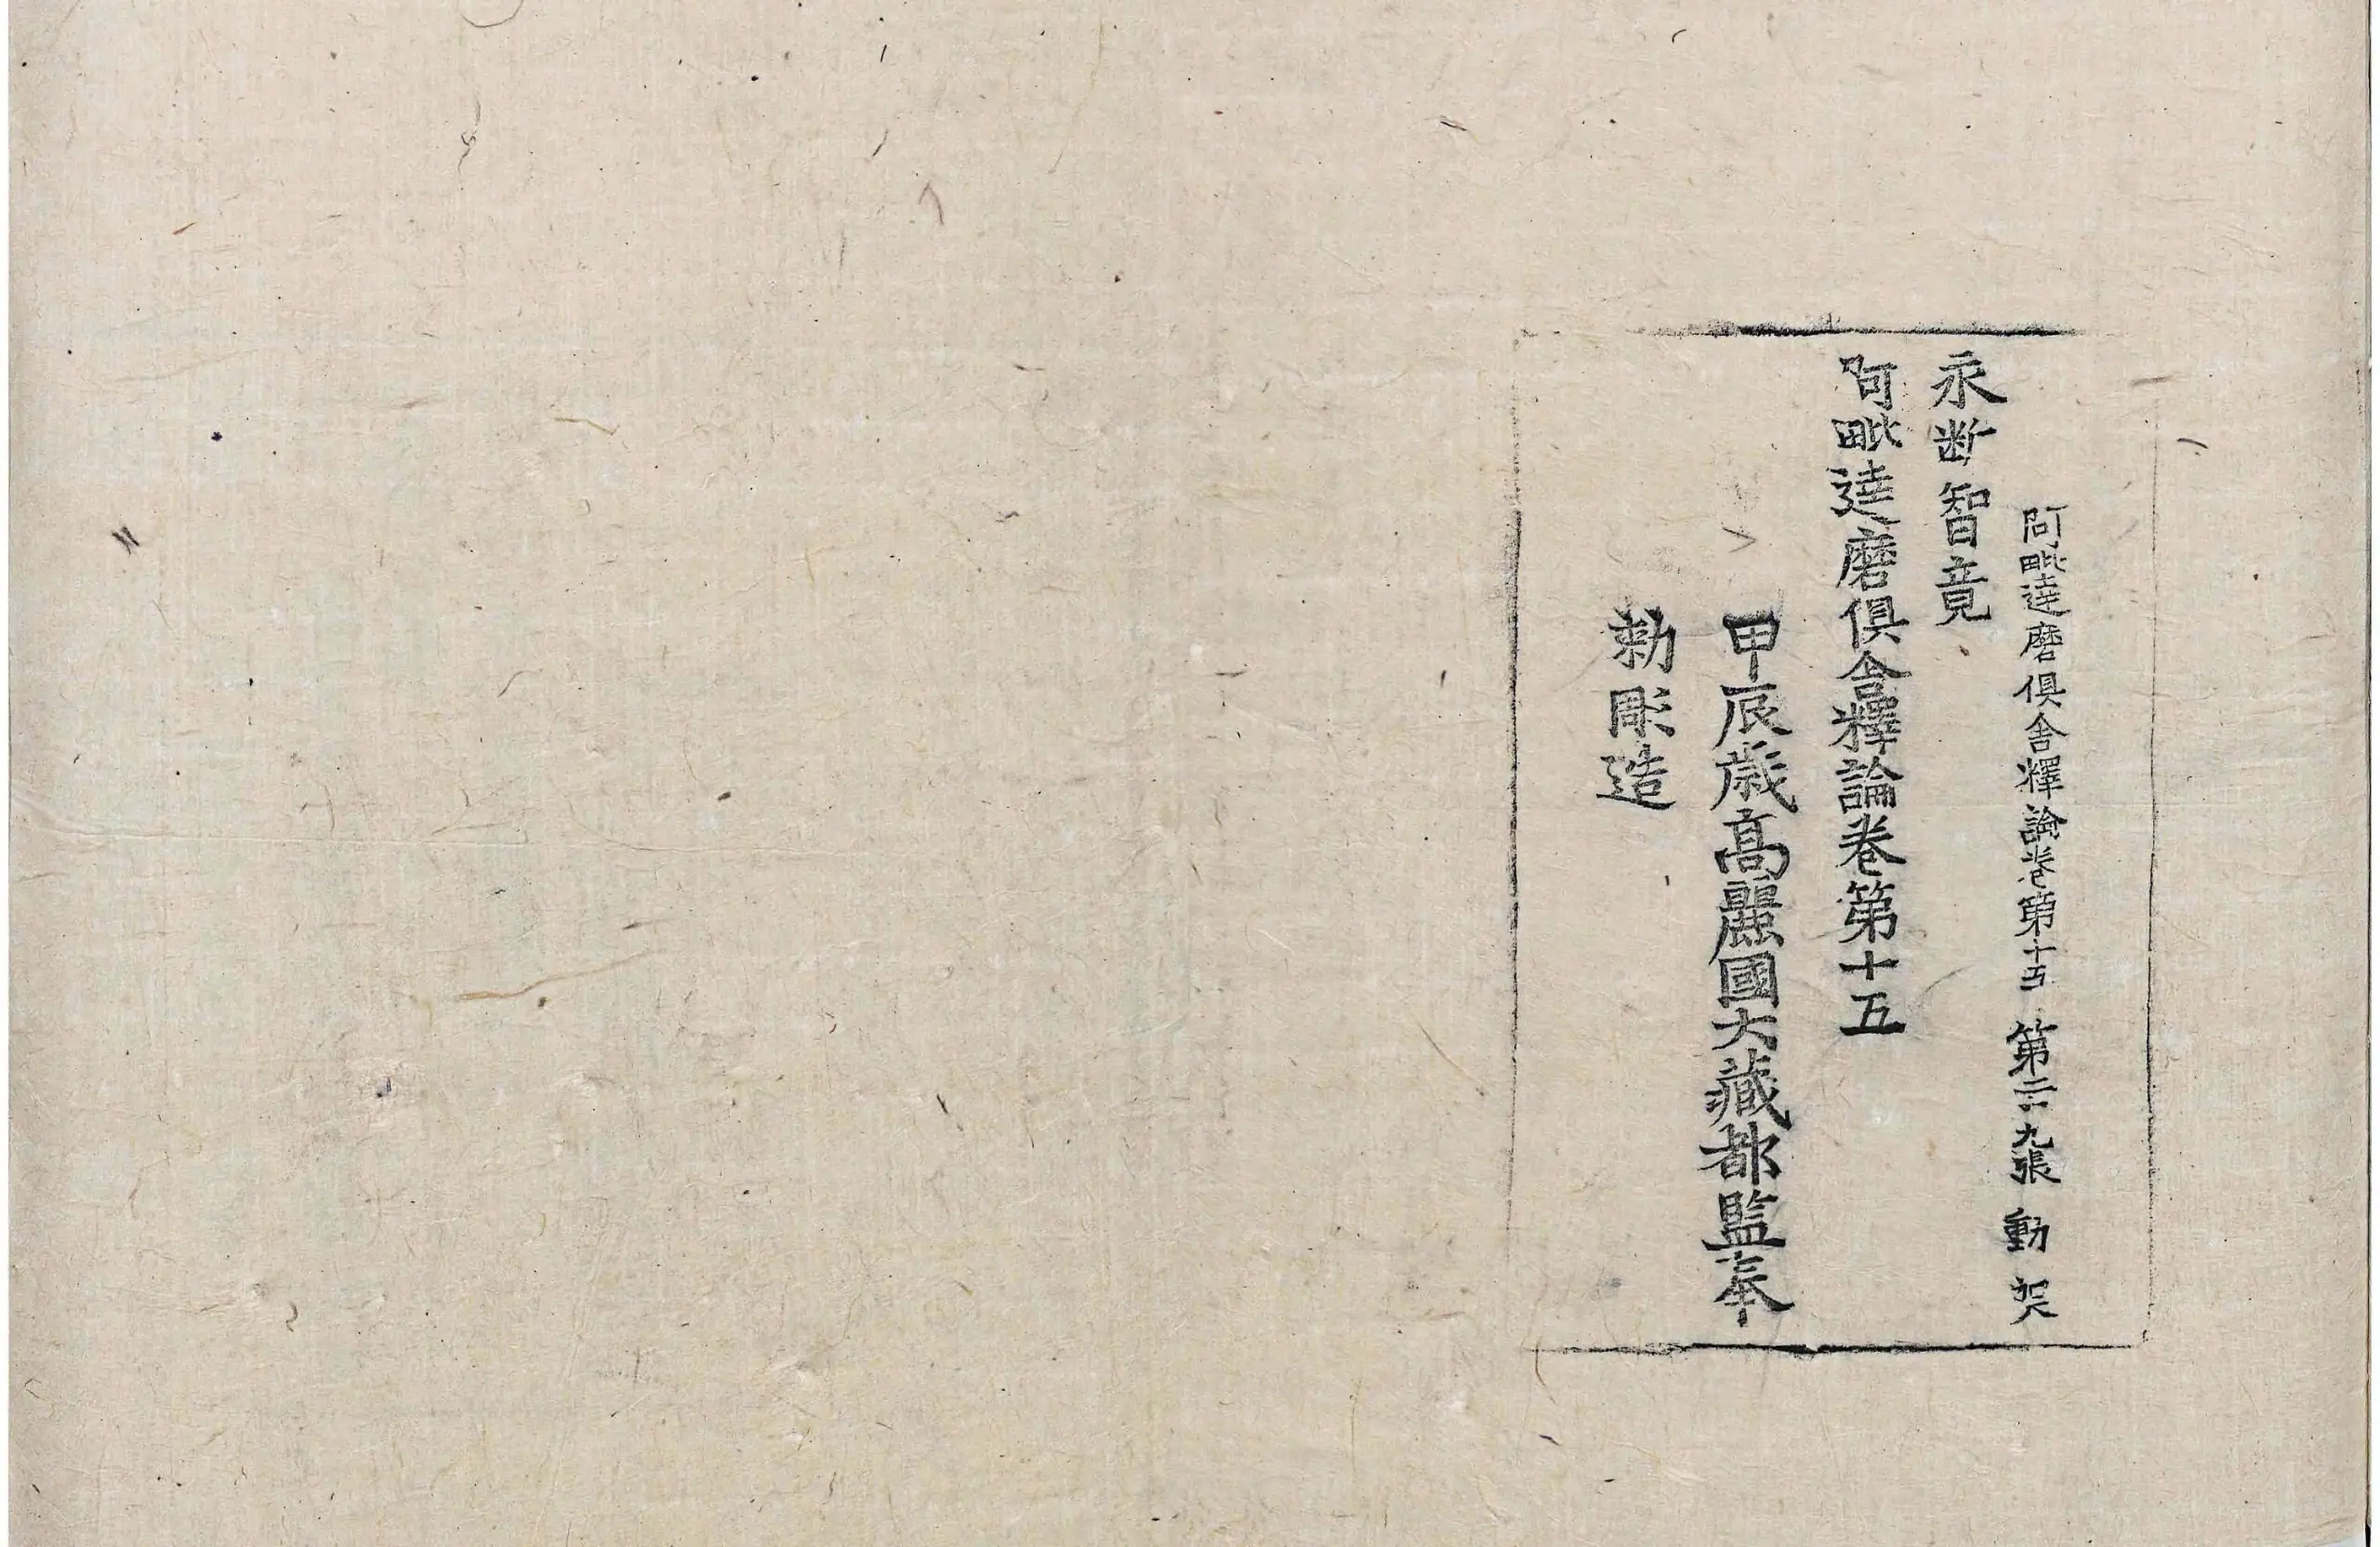 阿毗達磨俱舍釋論卷第十五 第二十九張 動
永斷智竟
阿毗達磨俱舍釋論卷第十五
甲辰歲高麗國大藏都監奉
勑彫造